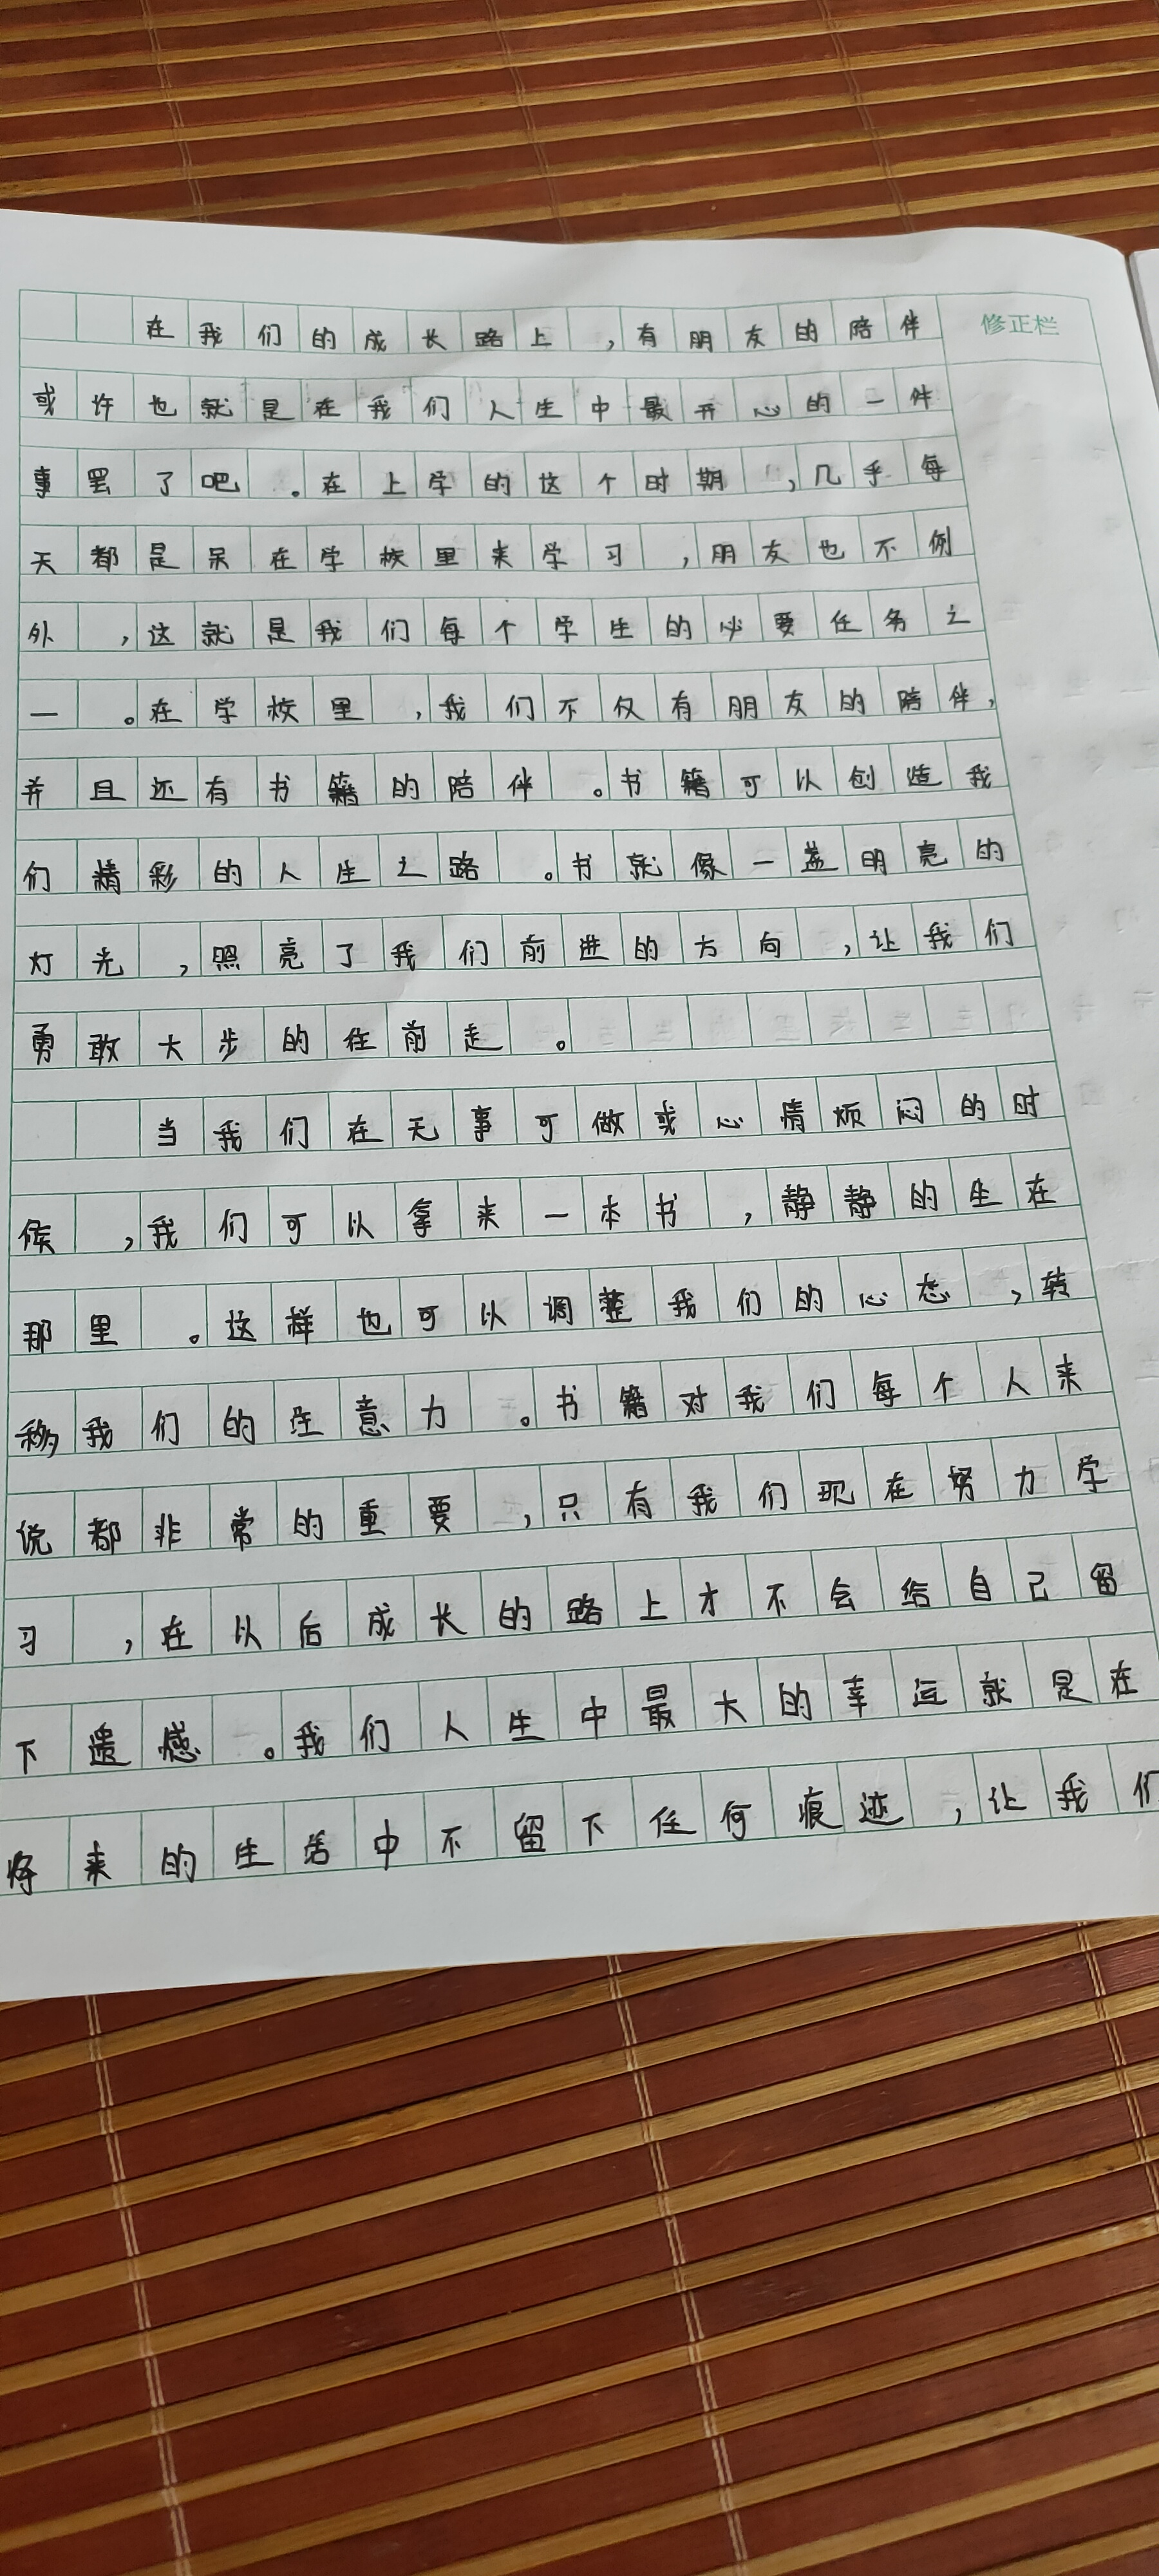 在我们的成长路上，有朋友的陪伴
修正栏
或许也就是在我们人生中最开心的一件
事罢了吧。在上学的这个时期，几乎每
天都是呆在学校里来学习，朋友也不例
外，这就是我们每个学生的必要任务之
一。在学校里，我们不仅有朋友的陪伴，
并且还有书籍的陪伴。书籍可以创造我
们精彩的人生之路。书就像一盏明亮的
灯光，照亮了我们前进的方向，让我们
勇敢大步的往前走。
当我们在无事可做或心情烦闷的时
候，我们可以拿来一本书，静静的坐在
那里。这样也可以调整我们的心态，转
移我们的注意力。书籍对我们每个人来
说都非常的重要，只有我们现在努力学
习，在以后成长的路上才不会给自己留
下遗憾。我们人生中最大的幸运就是在
将来的生活中不留下任何痕迹，让我们